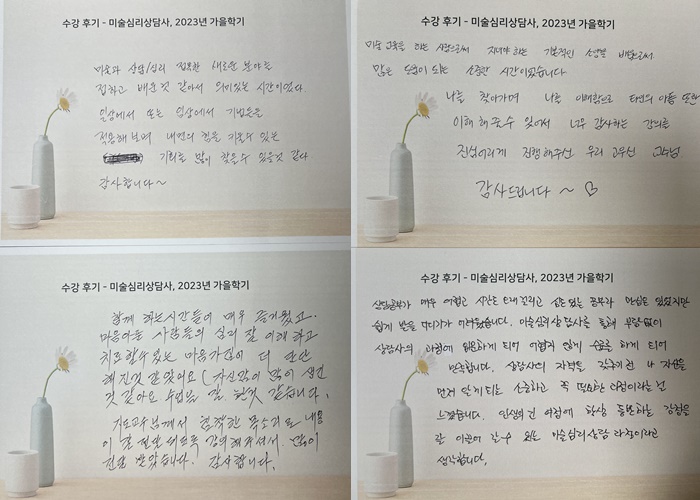 수강 후기 - 미술심리상담사, 2023년 가을학기
미술과 상담/심리 접목한 새로운 분야를
접하고 배운것 같아서 의미있는 시간이였다
일상에서 또는 임상에서 기법들을
적용해보며 내면의 힘을 키울수 있는
기회를 많이 찾을수 있을것 같다
감사합니다~
수강 후기 - 미술심리상담사, 2023년 가을학기
미술 교육을 하는 사람으로써 지녀야 하는 기본적인 소양을 배움으로써
많은 도움이 되는 소중한 시간이었습니다
나를 찾아가며 나를 이해함으로 타인의 아픔 또한
이해 해 줄수 있어서 너무 감사하는 강의를
진심어리게 진행해주신 우리 고우신 교수님
감사드립니다 ~ ♡
수강 후기 - 미술심리상담사, 2023년 가을학기
함께 하는시간들이 매우 즐거웠고.
마음아픈 사람들의 심리 잘 이해하고
치료할수있는 마음가짐이 더 단단
해진것 같았어요 (자신감이 많이 생긴
것 같아요 수업을 잘 한것 같습니다.
지도교수님께서 명확한 목소리로 내용
이 잘 전달되도록 강의해주셔서. 많이
전달 받았습니다. 감사합니다.
수강 후기 - 미술심리상담사, 2023년 가을학기
상담공부가 매우 어렵고 시간도 오래 걸리고 심도 있는 공부라 관심은 있었지만
쉽게 발을 딛기가 어려웠습니다. 미술심리상담사를 통해 부담없이
상담사의 과정에 입문하게 되어 어렵지 않게 수료를 하게 되어
만족합니다. 상담사의 자격을 갖추기 전 나 자신을
먼저 알게되는 소중하고 꼭 필요한 과정이라는걸
느꼈습니다. 인생의 긴 여정에 항상 동반하는 감정을
잘 이끌어 갈수 있는 미술심리상담 과정이라고
생각합니다.